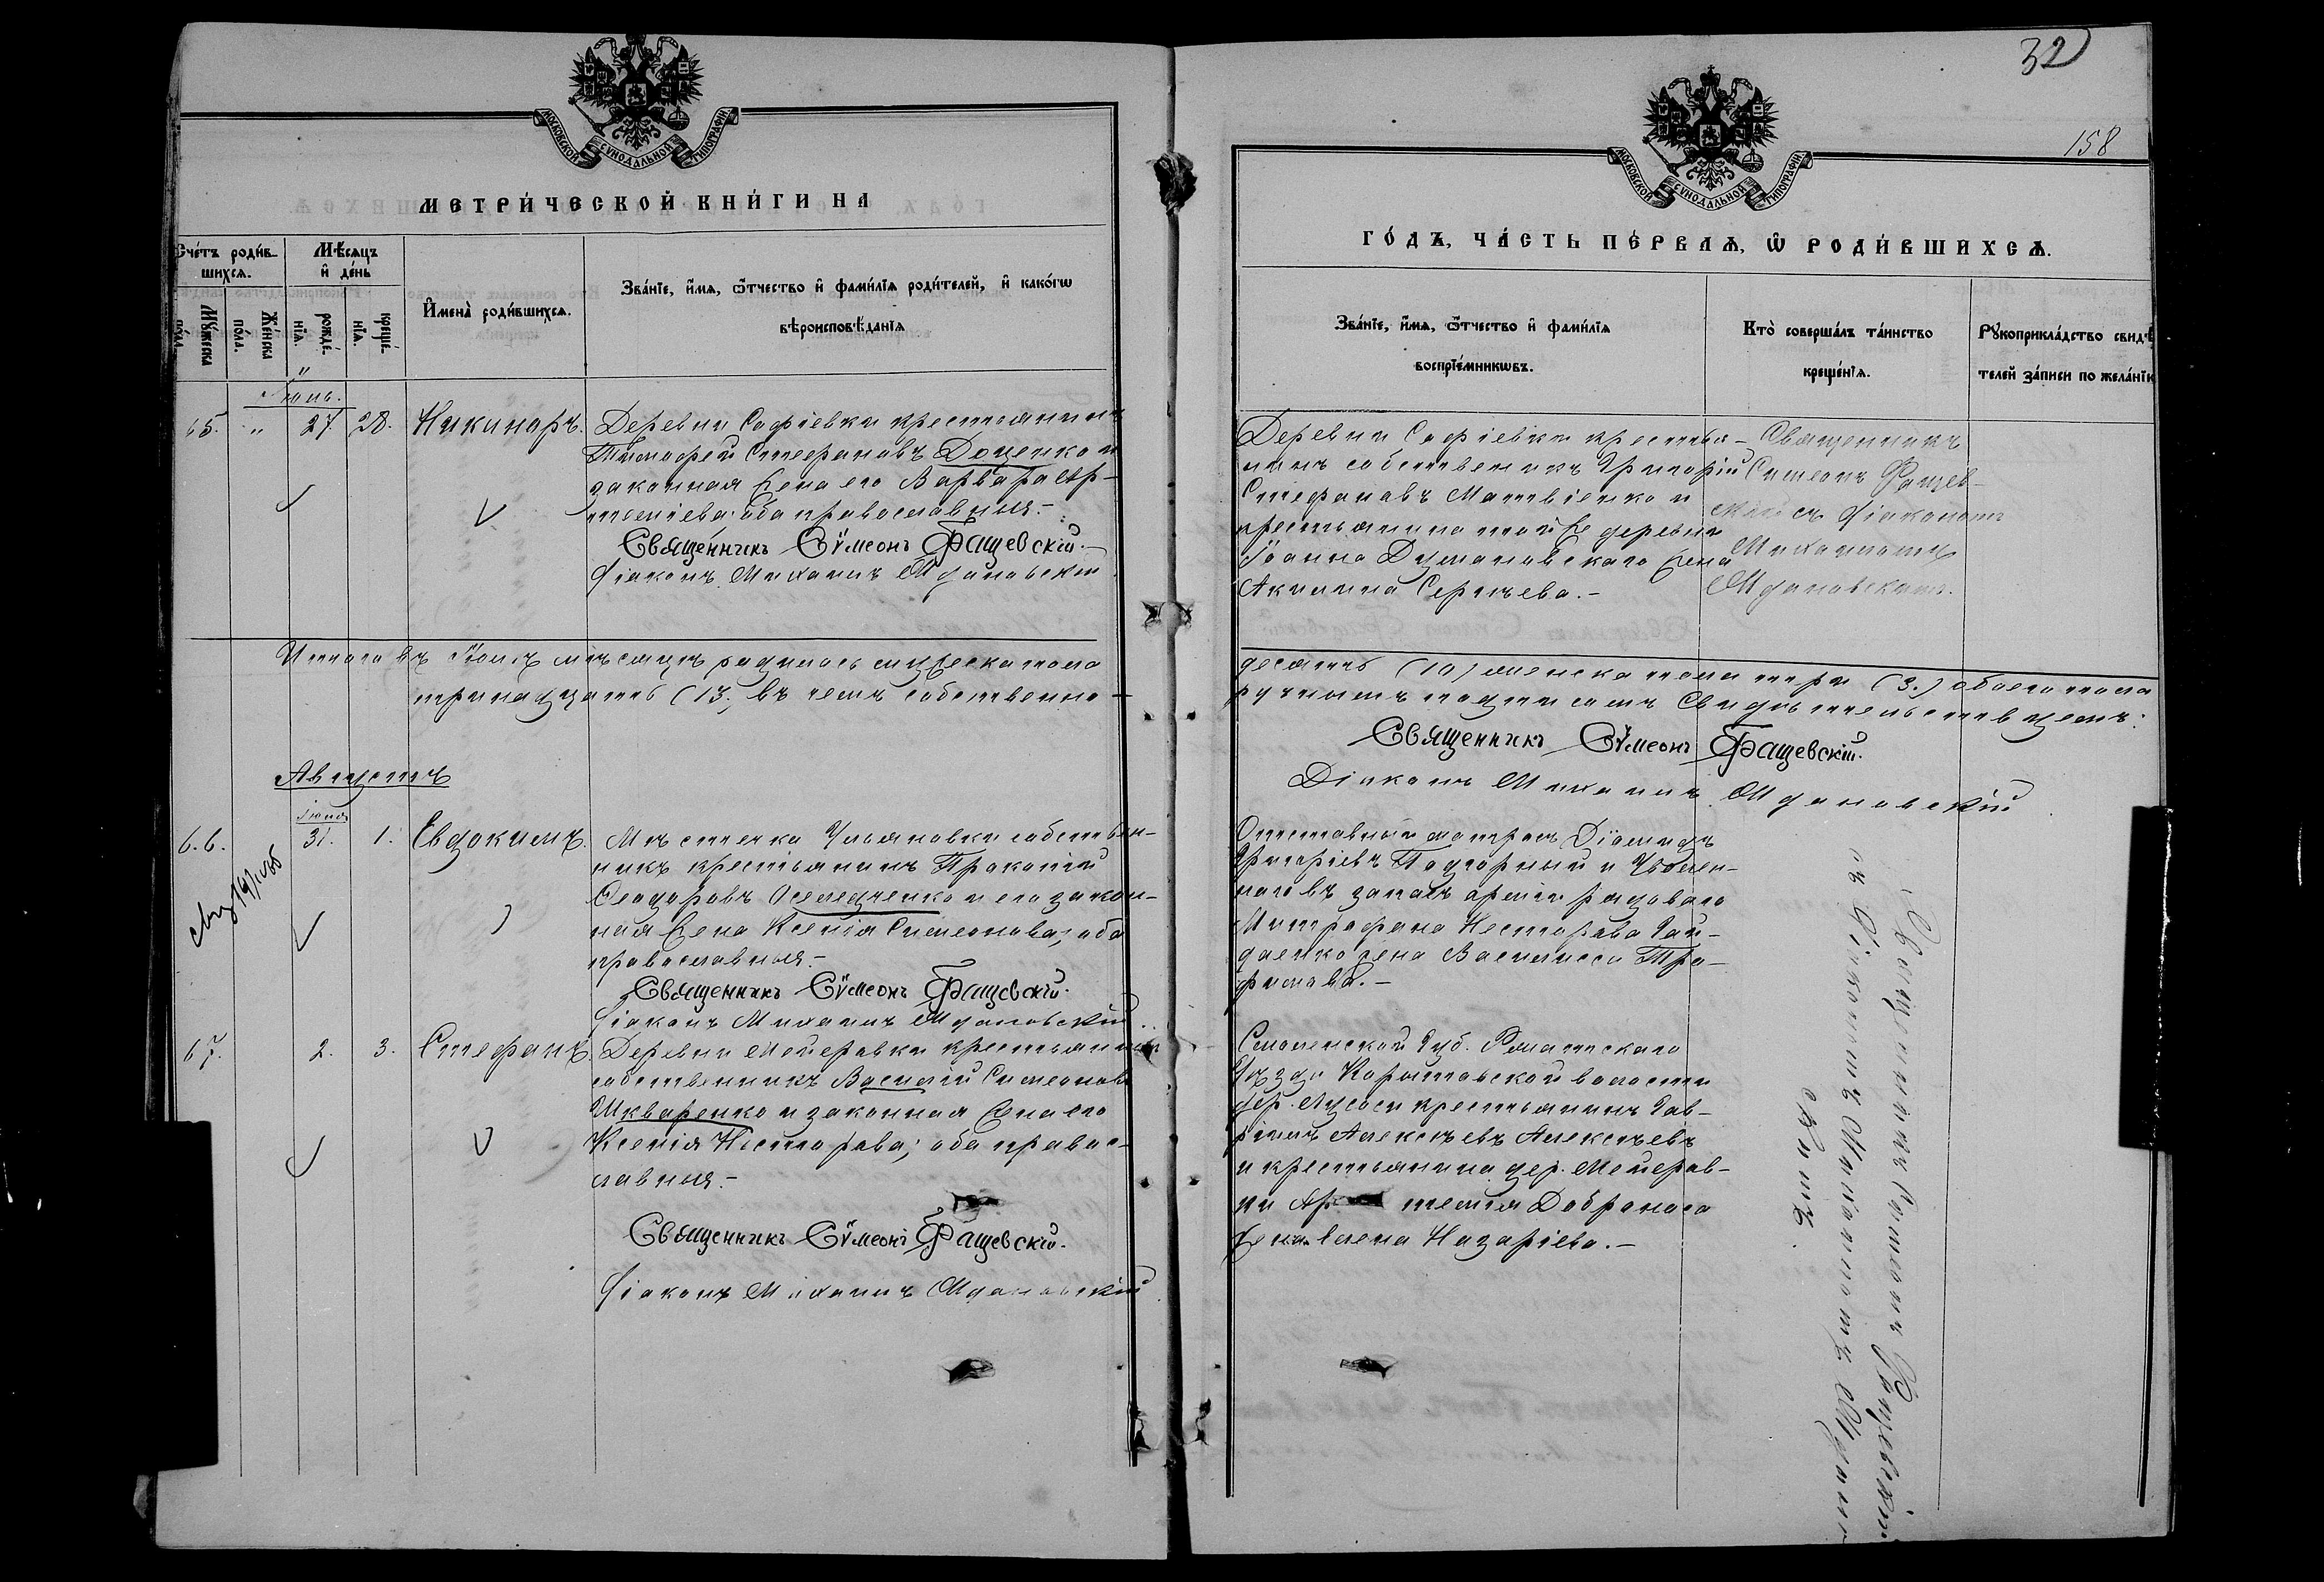 МОСКОВСКОЙ СѴНОДАЛЬНОЙ ТИПОГРАФІИ
МЕТРИ́ЧЕСКОЙ КНИ́ГИ НА
Сче́тъ роди́в-
шихсѧ.
Мѣ́сѧцъ
и҆ де́нь
Мꙋ́жеска
по́ла.
Же́нска
по́ла.
рожде́-
нїѧ.
креще́-
нїѧ.
И҆мена̀ роди́вшихсѧ.
Зва́нїе, и҆́мѧ, ѻ҆́тчество и҆ фами́лїѧ роди́телей, и҆ како́гѡ
вѣроисповѣ́данїѧ
Іюль.
65. " 27. 28. Никиноръ.
Деревни Софіевки крестьянинъ
Тимофей Стефановъ Доценко и
законная жена его Варвара Ар-
темiева; оба православныя.-
Священникъ Сѵмеонъ Фащевскій.
Діаконъ Михаилъ Мдановскій
Итого въ Іюлѣ мѣсяцѣ родилось мужеска пола
тринадцать (13, въ чемъ собственно-
Августъ
Іюля
66. 31. 1. Евдокимъ.
Мѣстечка Ульяновки собствен-
никъ крестьянинъ Прокопій
Ѳеодоровъ Оселедченко и его закон-
ная жена Ксенія Симеонова, оба
православныя.-
Священникъ Сѵмеонъ Фащевскій.
Діаконъ Михаилъ Мдановскій
67. 2. 3. Стефанъ.
Деревни Мейеровки крестьянинъ
собственникъ Василій Симеоновъ
Шкваренко и законная жена его
Ксенія Несторова; оба правос-
лавныя.-
Священникъ Сѵмеонъ Фащевскій.
Діаконъ Михаилъ Мдановскій
32
158
МОСКОВСКОЙ СѴНОДАЛЬНОЙ ТИПОГРАФІИ
ГО́ДЪ, ЧА́СТЬ ПЕ́РВАѦ, Ѡ҆ РОДИ́ВШИХСѦ.
Зва́нїе, и҆́мѧ, ѻ҆́тчество и҆ фами́лїѧ
воспрїе́мникѡвъ.
Кто̀ соверша́лъ та́инство
креще́нїѧ.
Рꙋкоприкла́дство свидѣ́
телей за́писи по жела́нїю
Деревни Софіевки крестья-
нинъ собственикъ Григорій
Стефановъ Матвіенко и
крестьянина той же деревни
Іоанна Думановскаго жена
Акилина Сергѣева.-
Священникъ
Симеонъ Фащев-
скій съ Діакономъ
Михаиломъ
Мдановскимъ.
десять (10) женска пола три (3.) обоего пола
ручнымъ подписомъ Свидѣтельствуемъ:
Священникъ Сѵмеонъ Фащевскій.
Діаконъ Михаилъ Мдановскій
Отставный матросъ Діомидъ
Григоріевъ Подгорный и Уволен-
наго въ запасъ арміи рядоваго
Митрофана Несторова Гай-
даенко жена Василисса Тро-
фимова.-
Смоленской Губ.
Уѣзда Корытовской волости
дер. крестьянинъ Гав-
ріилъ Алексѣевъ Алексѣевъ
и крестьянина дер. Мейеров-
ки Ар темія Добраного
жена Елена Назаріева.-
Священникъ Симеонъ Фащевскій
съ Діакономъ Михаиломъ Мданов
скимъ.